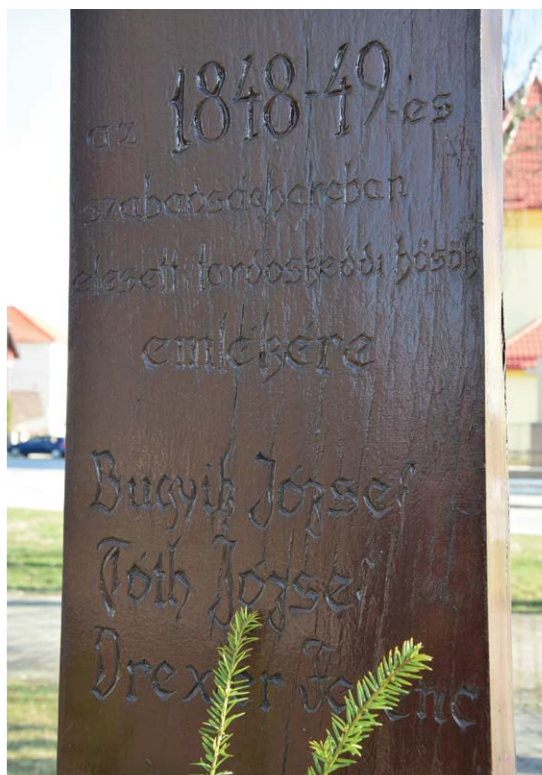 az 1848-49-es
szabadságharcban
elesett tardoskeddi hősök
emlékére
Bugyik József
Tóth József
Drexler Ferenc